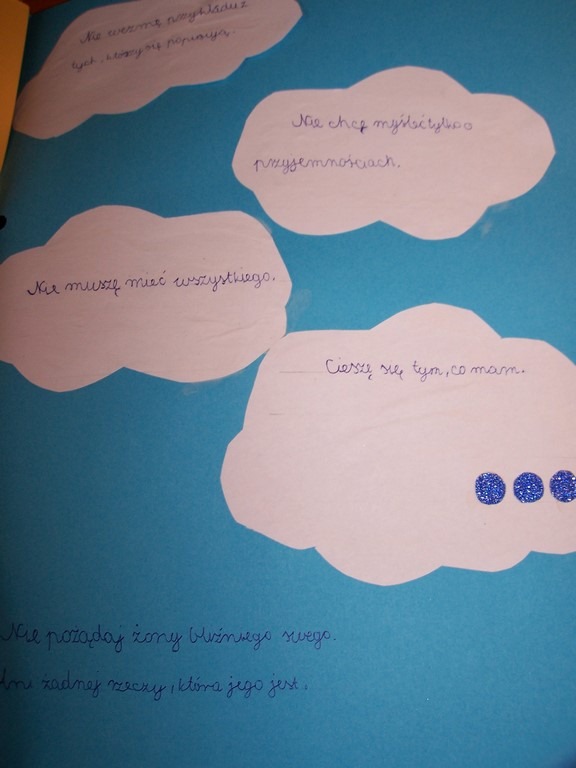 Nie wezmę przykładu z
tych, którzy się popisują.
Nie chcę myśleć tylko o
przyjemnościach.
Nie muszę mieć wszystkiego.
Cieszę się tym, co mam.
Nie pożądaj żony bliźniego swego.
Ani żadnej rzeczy, która jego jest.